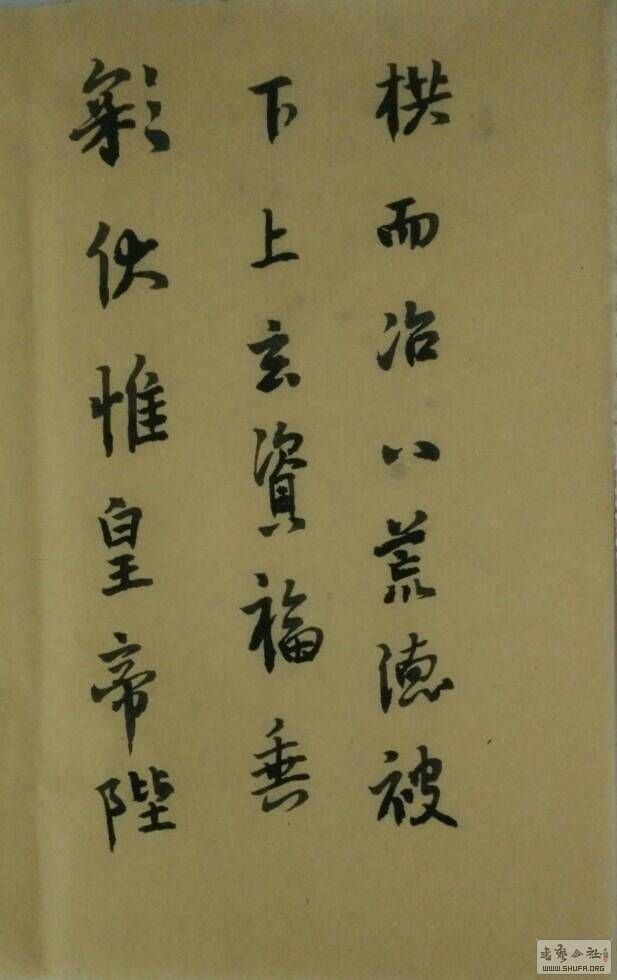 彩伏惟皇帝陛
下上玄資福垂
栱而冶八荒德被
書藝公社
WWW.SHUFA.ORG